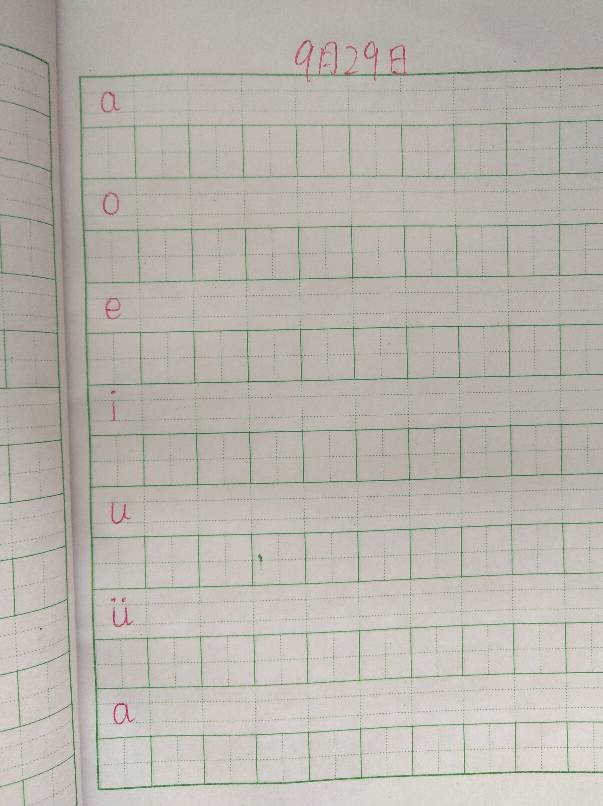 9月29日
a
o
e
i
u
ü
a